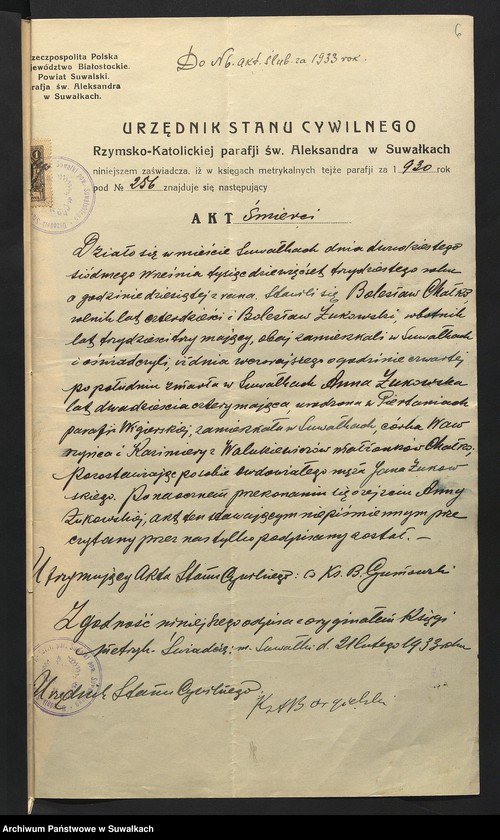 6
Do Nb. akt. ślub. za 1933 rok.
Rzeczpospolita Polska
Województwo Białostockie.
Powiat Suwalski.
Parafja św. Aleksandra
w Suwałkach.
URZĘDNIK STANU CYWILNEGO
Rzymsko-Katolickiej parafji św. Aleksandra w Suwałkach
niniejszem zaświadcza, iż w księgach metrykalnych tejże parafji za 1.930 rok
pod № 256 znajduje się następujący
AKT Śmierci
Działo się w mieście Suwałkach dnia dwudziestego
siódmego Września tysiąc dziewięćset trzydziestego roku
o godzinie dziesiątej z rana. Stawili się Bolesław Chałko
rolnik lat czterdzieści i Bolesław Żukowski, robotnik
lat trzydzieści trzy mający, obaj zamieszkali w Suwałkach
i oświadczyli, iż dnia wczorajszego o godzinie czwartej
po południu zmarła w Suwałkach Anna Żukowska
lat dwadzieścia cztery mająca, urodzona w Piertaniach
parafji Wigierskiej, zamieszkała w Suwałkach, córka Waw
rzyńca i Kazimiery z Walukiewiczów małżonków Chałko,
pozostawiając po sobie owdowiałego męża Jana Żukow
skiego. Po naocznem przekonaniu się o zejściu Anny
Żukowskiej, akt ten stawającym niepiśmiennym prze
czytany przez nas tylko podpisany został. —
Utrzymujący Akta Stanu Cywilnego: Ks. B. Gumowski
Zgodność niniejszego odpisu z oryginałem Księgi
metryk. Świadczę: m. Suwałki d. 21 lutego 1933 roku
Urzędnik Stanu Cywilnego
Archiwum Państwowe w Suwałkach